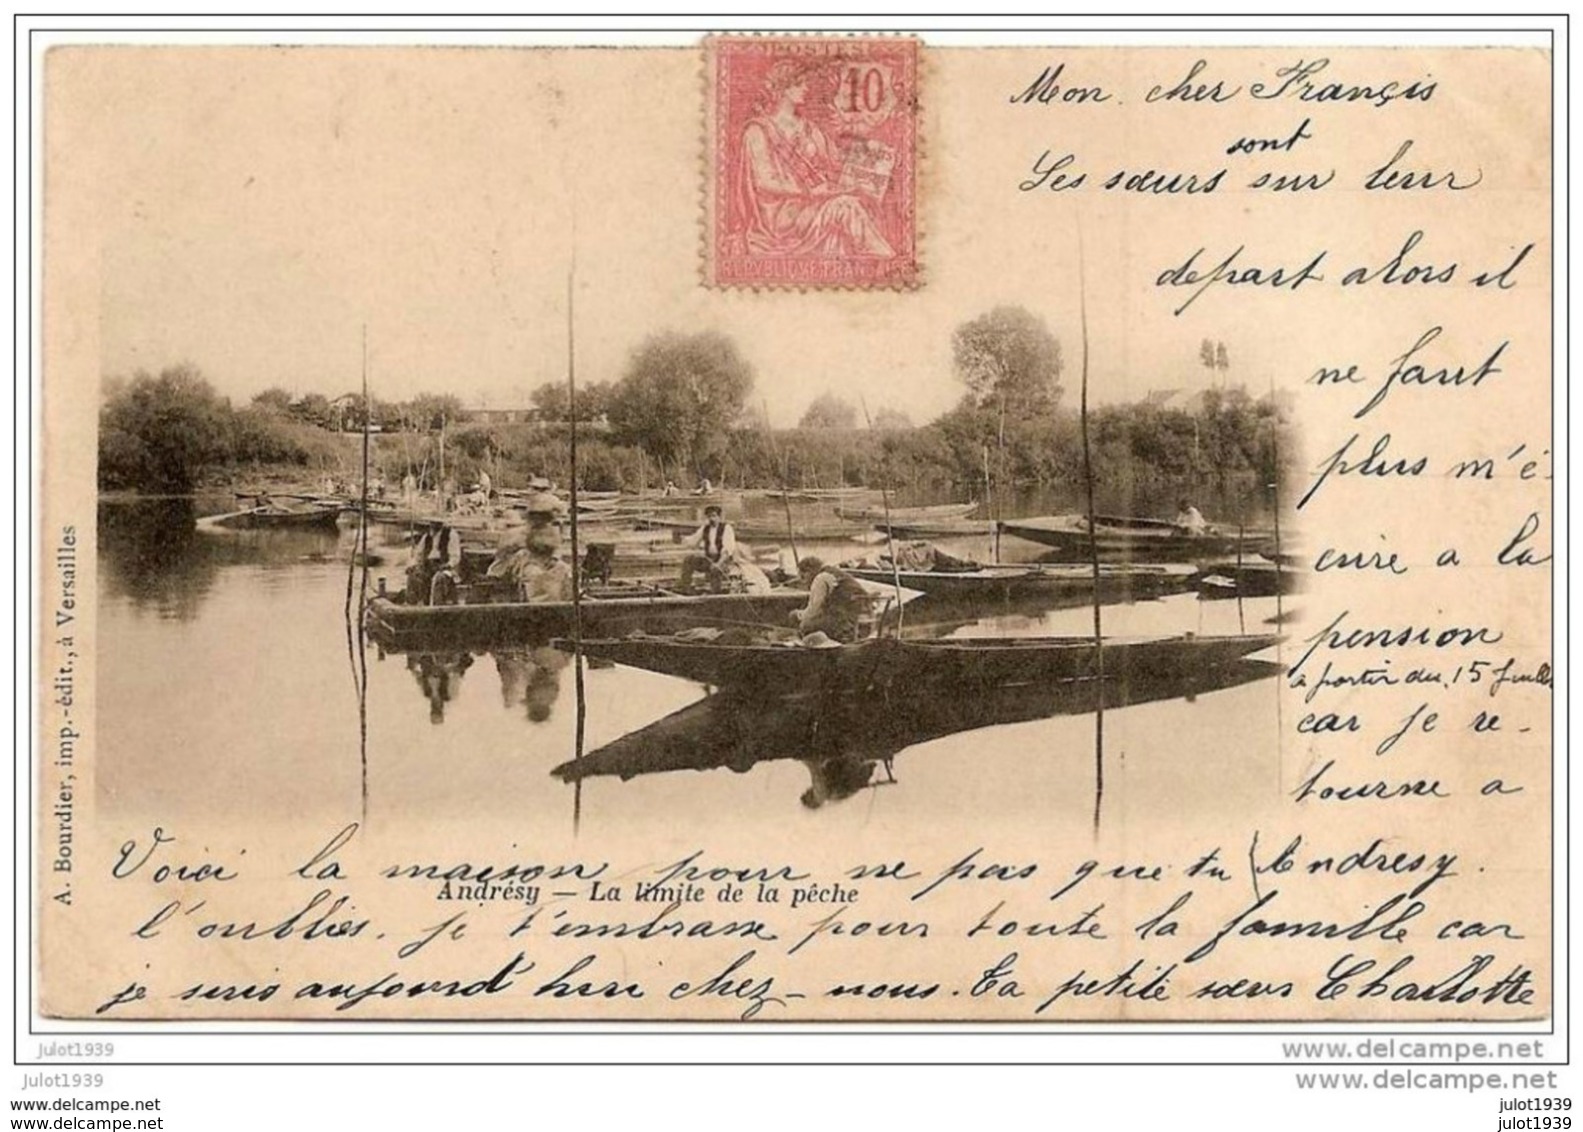 POSTES
10
REPUBLIQUE FRANCAISE
Mon cher Françis
sont
Les sœurs sur leur
depart alors il
ne faut
plus m'é-
crire a la
pension
a partir du 15 Juillet
car je re-
tourne a
Andresy.
Voici la maison pour ne pas que tu
Andrésy — La limite de la pêche
l'oublies. je t'embrasse pour toute la famille car
je suis aujourd'hui chez-nous. Ta petite sœur Charlotte
A. Bourdier, imp.-édit., à Versailles
julot1939
www.delcampe.net
julot1939
www.delcampe.net
julot1939
julot1939
julot1939
julot1939